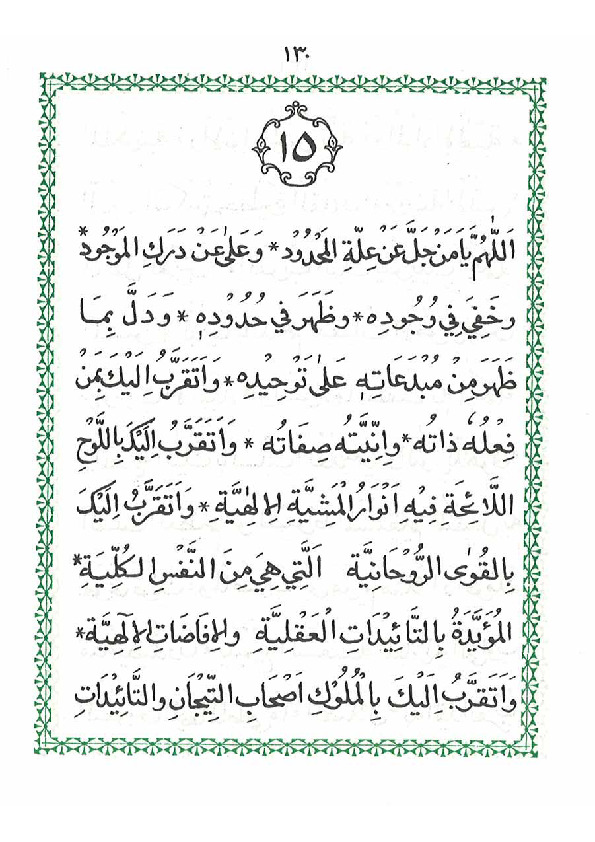 ١٣٠
١٥
اَللّٰهُمَّ يَا مَنْ جَلَّ عَنْ عِلّةِ المَحْدُوْد * وَعَلٰى عَنْ دَرَكِ المَوْجُود *
وخَفِيَ فِي وُجُودِه * وظَهَرَ في حُدُوْدِهٖ * وَدَلَّ بِمَا
ظَهَرَ مِنْ مُبْدَعَاتِهٖ عَلٰى تَوْحِيْدِه * وَاَتَقَرَّبُ اِلَيْكَ بِمَنْ
فِعْلُهٗ ذَاتُه * وإنّيَّتُه صِفَاتُه * وَاَتَقَرَّبُ اِلَيْكَ بِاللَّوْحِ
اللَّائِحَةِ فِيْهِ اَنْوَارُ المَشِيَّةِ الِالٰهِيَّةِ * وَاَتَقَرَّبُ اِلَيْكَ
بِالقُوٰى الرُّوْحَانِيَّة اَلَّتِي هِيَ مِنَ النَّفْسِ الكُلِّيَة *
المُؤَيَّدَةُ بِالتَّائِيْدَاتِ الْعَقْلِيَّةِ والِافَاضَاتِ الِالٰهِيَّة *
وَاَتَقرَّبُ اِلَيْكَ بِالْمُلُوْكِ اَصْحَابِ التِّيْجَانِ والتَّائِيْدَاتِ